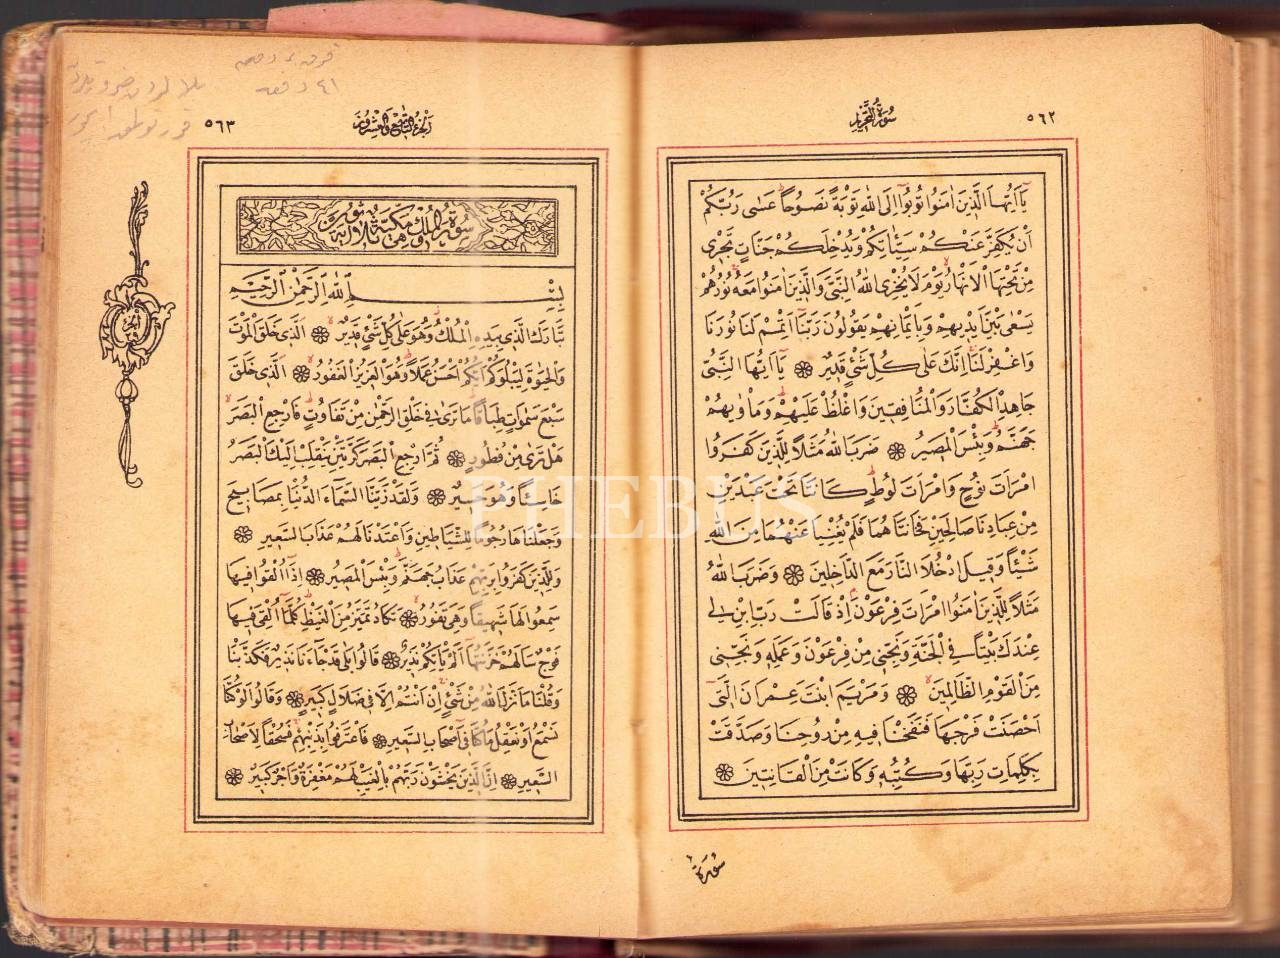 ٥٦٢
سُورَةُ التَّحْرِيمِ
يَآ اَيُّهَا الَّذٖينَ اٰمَنُوا تُوبُٓوا اِلَى اللّٰهِ تَوْبَةً نَصُوحًا عَسٰى رَبُّكُمْ
اَنْ يُكَفِّرَ عَنْكُمْ سَيِّاٰتِكُمْ وَيُدْخِلَكُمْ جَنَّاتٍ تَجْرٖى
مِنْ تَحْتِهَا الْاَنْهَارُ يَوْمَ لَا يُخْزِى اللّٰهُ النَّبِىَّ وَالَّذٖينَ اٰمَنُوا مَعَهُ نُورُهُمْ
يَسْعٰى بَيْنَ اَيْدٖيهِمْ وَبِاَيْمَانِهِمْ يَقُولُونَ رَبَّنَا اَتْمِمْ لَنَا نُورَنَا
وَاغْفِرْ لَنَا اِنَّكَ عَلٰى كُلِّ شَىْءٍ قَدٖيرٌ ۞ يَآ اَيُّهَا النَّبِىُّ
جَاهِدِ الْكُفَّارَ وَالْمُنَافِقٖينَ وَاغْلُظْ عَلَيْهِمْ وَمَاْوٰيهُمْ
جَهَنَّمُ وَبِئْسَ الْمَصٖيرُ ۞ ضَرَبَ اللّٰهُ مَثَلًا لِلَّذٖينَ كَفَرُوا
امْرَاَتَ نُوحٍ وَامْرَاَتَ لُوطٍ كَانَتَا تَحْتَ عَبْدَيْنِ
مِنْ عِبَادِنَا صَالِحَيْنِ فَخَانَتَاهُمَا فَلَمْ يُغْنِيَا عَنْهُمَا مِنَ اللّٰهِ
شَيْئًا وَقٖيلَ ادْخُلَا النَّارَ مَعَ الدَّاخِلٖينَ ۞ وَضَرَبَ اللّٰهُ
مَثَلًا لِلَّذٖينَ اٰمَنُوا امْرَاَتَ فِرْعَوْنَ اِذْ قَالَتْ رَبِّ ابْنِ لٖى
عِنْدَكَ بَيْتًا فِى الْجَنَّةِ وَنَجِّنٖى مِنْ فِرْعَوْنَ وَعَمَلِهٖ وَنَجِّنٖى
مِنَ الْقَوْمِ الظَّالِمٖينَ ۞ وَمَرْيَمَ ابْنَتَ عِمْرَانَ الَّتٖٓى
اَحْصَنَتْ فَرْجَهَا فَنَفَخْنَا فٖيهِ مِنْ رُوحِنَا وَصَدَّقَتْ
بِكَلِمَاتِ رَبِّهَا وَكُتُبِهٖ وَكَانَتْ مِنَ الْقَانِتٖينَ ۞
سُورَةُ
٥٦٣
اَلْجُزْءُ التَّاسِعُ وَالْعِشْرُونَ
سُورَةُ الْمُلْكِ مَكِّيَّةٌ وَهِىَ ثَلَاثُونَ اٰيَةً
بِسْمِ اللّٰهِ الرَّحْمٰنِ الرَّحٖيمِ
تَبَارَكَ الَّذٖى بِيَدِهِ الْمُلْكُ وَهُوَ عَلٰى كُلِّ شَىْءٍ قَدٖيرٌ ۞ اَلَّذٖى خَلَقَ الْمَوْتَ
وَالْحَيٰوةَ لِيَبْلُوَكُمْ اَيُّكُمْ اَحْسَنُ عَمَلًا وَهُوَ الْعَزٖيزُ الْغَفُورُ ۞ اَلَّذٖى خَلَقَ
سَبْعَ سَمٰوَاتٍ طِبَاقًا مَا تَرٰى فٖى خَلْقِ الرَّحْمٰنِ مِنْ تَفَاوُتٍ فَارْجِعِ الْبَصَرَ
هَلْ تَرٰى مِنْ فُطُورٍ ۞ ثُمَّ ارْجِعِ الْبَصَرَ كَرَّتَيْنِ يَنْقَلِبْ اِلَيْكَ الْبَصَرُ
خَاسِئًا وَهُوَ حَسٖيرٌ ۞ وَلَقَدْ زَيَّنَّا السَّمَآءَ الدُّنْيَا بِمَصَابٖيحَ
وَجَعَلْنَاهَا رُجُومًا لِلشَّيَاطٖينِ وَاَعْتَدْنَا لَهُمْ عَذَابَ السَّعٖيرِ ۞
وَلِلَّذٖينَ كَفَرُوا بِرَبِّهِمْ عَذَابُ جَهَنَّمَ وَبِئْسَ الْمَصٖيرُ ۞ اِذَٓا اُلْقُوا فٖيهَا
سَمِعُوا لَهَا شَهٖيقًا وَهِىَ تَفُورُ ۞ تَكَادُ تَمَيَّزُ مِنَ الْغَيْظِ كُلَّمَٓا اُلْقِىَ فٖيهَا
فَوْجٌ سَاَلَهُمْ خَزَنَتُهَٓا اَلَمْ يَاْتِكُمْ نَذٖيرٌ ۞ قَالُوا بَلٰى قَدْ جَآءَنَا نَذٖيرٌ فَكَذَّبْنَا
وَقُلْنَا مَا نَزَّلَ اللّٰهُ مِنْ شَىْءٍ اِنْ اَنْتُمْ اِلَّا فٖى ضَلَالٍ كَبٖيرٍ ۞ وَقَالُوا لَوْ كُنَّا
نَسْمَعُ اَوْ نَعْقِلُ مَا كُنَّا فٖٓى اَصْحَابِ السَّعٖيرِ ۞ فَاعْتَرَفُوا بِذَنْبِهِمْ فَسُحْقًا لِاَصْحَابِ
السَّعٖيرِ ۞ اِنَّ الَّذٖينَ يَخْشَوْنَ رَبَّهُمْ بِالْغَيْبِ لَهُمْ مَغْفِرَةٌ وَاَجْرٌ كَبٖيرٌ ۞
PHEBUS